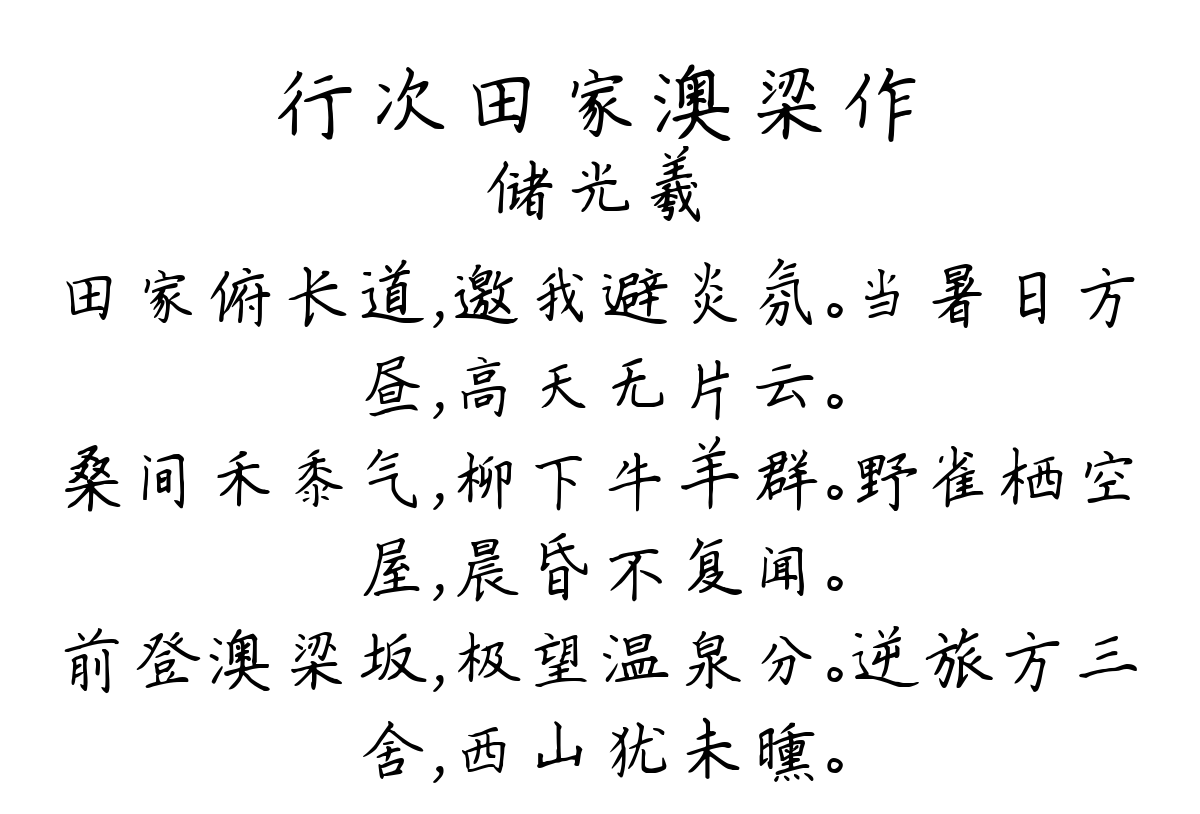 行次田家澳梁作
储光羲
田家俯长道,邀我避炎氛。当暑日方
昼,高天无片云。
桑间禾黍气,柳下牛羊群。野雀栖空
屋,晨昏不复闻。
前登澳梁坂,极望温泉分。逆旅方三
舍,西山犹未曛。